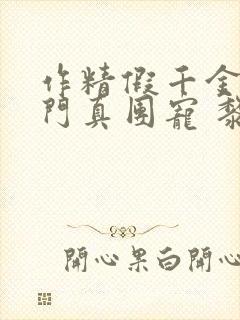 作精假千金
門真團寵 黎
開心果白開心